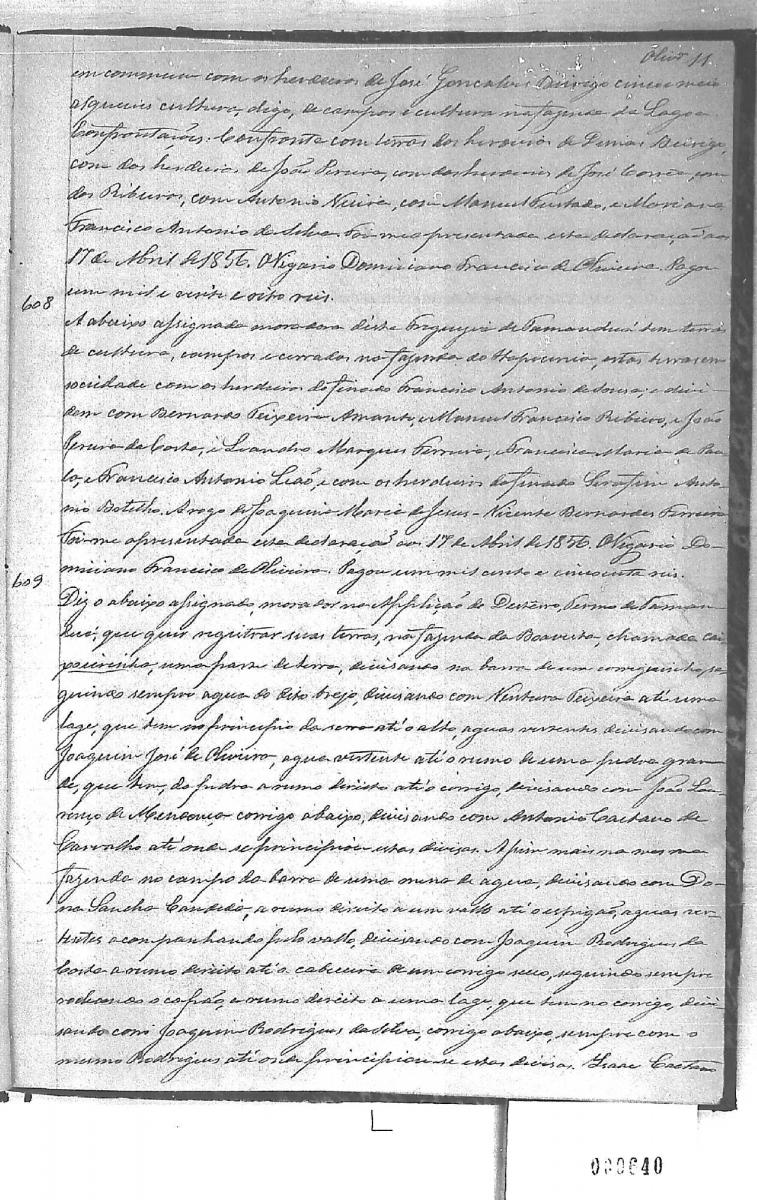 Oliv 11
em commum com os herdeiros de José Gonçalves cinco mais
alqueires cultura, digo, de campos e cultura na fazenda da Lagoa
Confrontações: Confronta com terras dos herdeiros de Dimas
com dos herdeiros de João Pereira, com dos herdeiros de José Corrêa, com
dos Ribeiros, com Antonio Vieira, com Manuel Furtado, e Mariano
Francisco Antonio da Silva. Foi-me apresentada esta declaração aos
17 de Abril de 1856. O Vigario Domiciano Francisco de Oliveira. Pagou
um mil e vinte e oito reis.
608
A abaixo assignada moradora d'esta Freguezia de Tamanduá tem terras
de cultura, campos e cerrados na fazenda do estas terras em
sociedade com os herdeiros do finado Francisco Antonio de Sousa; e divi-
dem com Bernardo Teixeira Amante, e Manuel Francisco Ribeiro, e João
Pereira da Costa, e Leandro Marques Ferreira, e Francisco Maria de Pau-
la, e Francisco Antonio Leão, e com os herdeiros do finado Serafim Anto-
nio Botelho. A rogo de Joaquina Maria de Jesus - Vicente Bernardes Ferreira
Foi-me apresentada esta declaração aos 17 de Abril de 1856. O Vigario Do-
miciano Francisco de Oliveira. Pagou um mil cento e cincoenta reis.
609
Diz o abaixo assignado morador na Applicação do Desterro, Termo de Taman-
duá, que quer registrar suas terras, na fazenda da Boavista, chamada ca-
poeirinha, uma parte de terra, divisando na barra de um correguinho, se-
guindo sempre agua do dito brejo, divisando com Ventura Teixeira até uma
lage, que tem no principio da serra até o alto, aguas vertentes, divisando com
Joaquim José de Oliveira, agua vertente até o rumo de uma pedra gran-
de, que tem, da pedra a rumo direito até o corrigo, divisando com João Lou-
renço de Mendonça corrigo abaixo, divisando com Antonio Caetano de
Carvalho até onde se principiou estas divisas. Assim mais na mesma
fazenda no campo da barra de uma mina de agua, divisando com Do-
na Sancha Candida, a rumo direito a um vallo até o espigão, aguas ver-
tentes acompanhando pelo vallo, divisando com Joaquim Rodrigues da
Costa a rumo direito até a cabeceira de um corrigo seco, seguindo sempre
rodeando o capão, a rumo direito a uma lage, que tem no corrigo, divi-
sando com Joaquim Rodrigues da Silva, corrigo abaixo, sempre com o
mesmo Rodrigues até onde principiou-se estas divisas. Isaac Caetano
000640